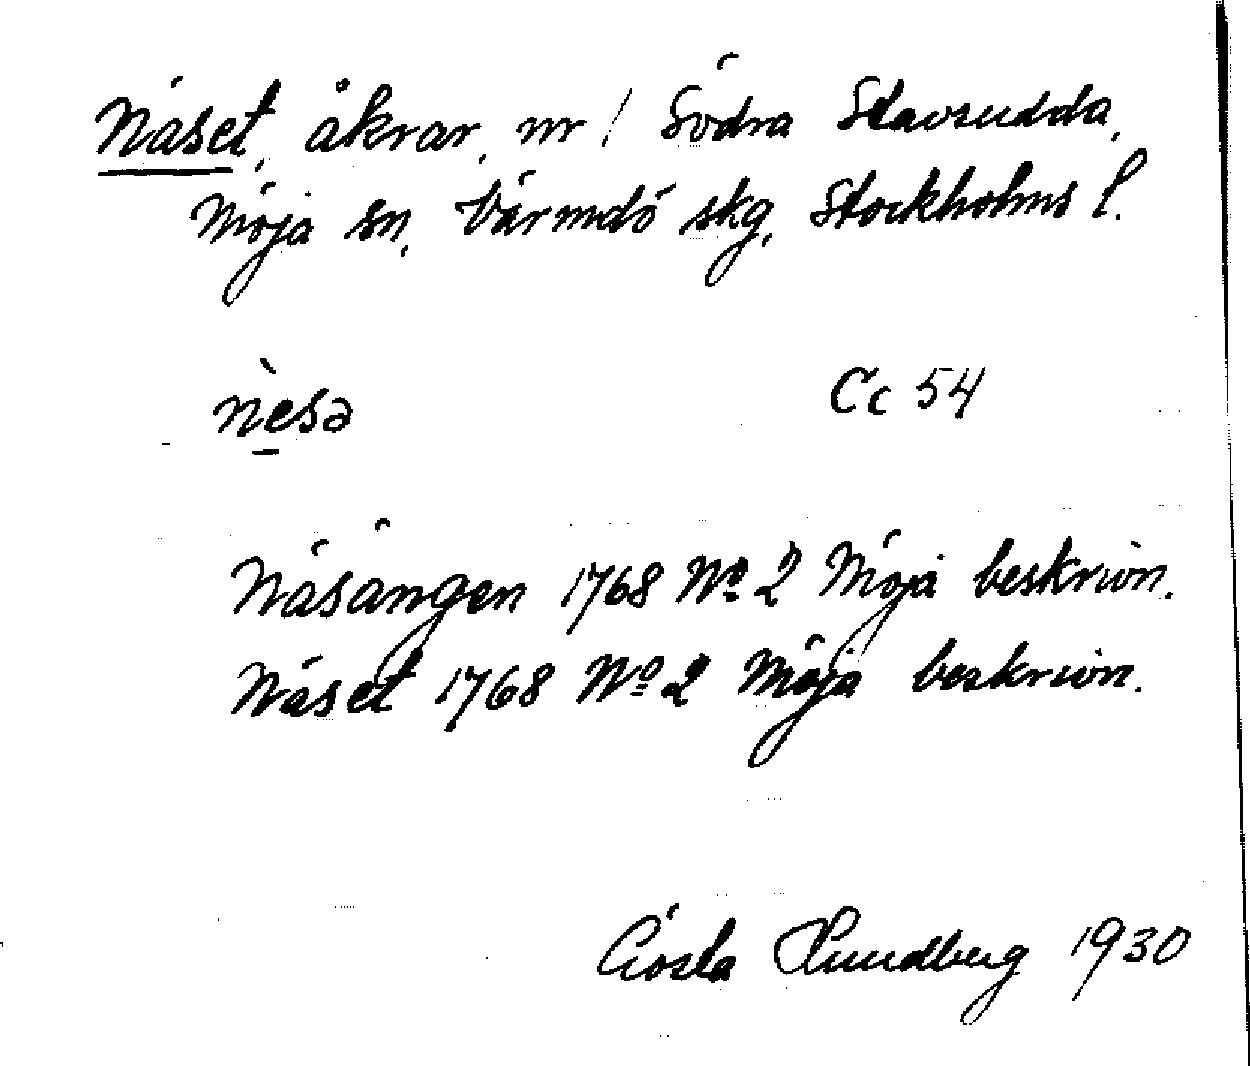 Näset, åkrar, nr 1 Södra Stavsudda,
Möja sn, Värmdö skg, Stockholms l.
nèsə
Cc 54
Näsängen 1768 No 2 Möja beskrivn.
Näset 1768 No 2 Möja beskrivn.
Gösta Lundberg 1930